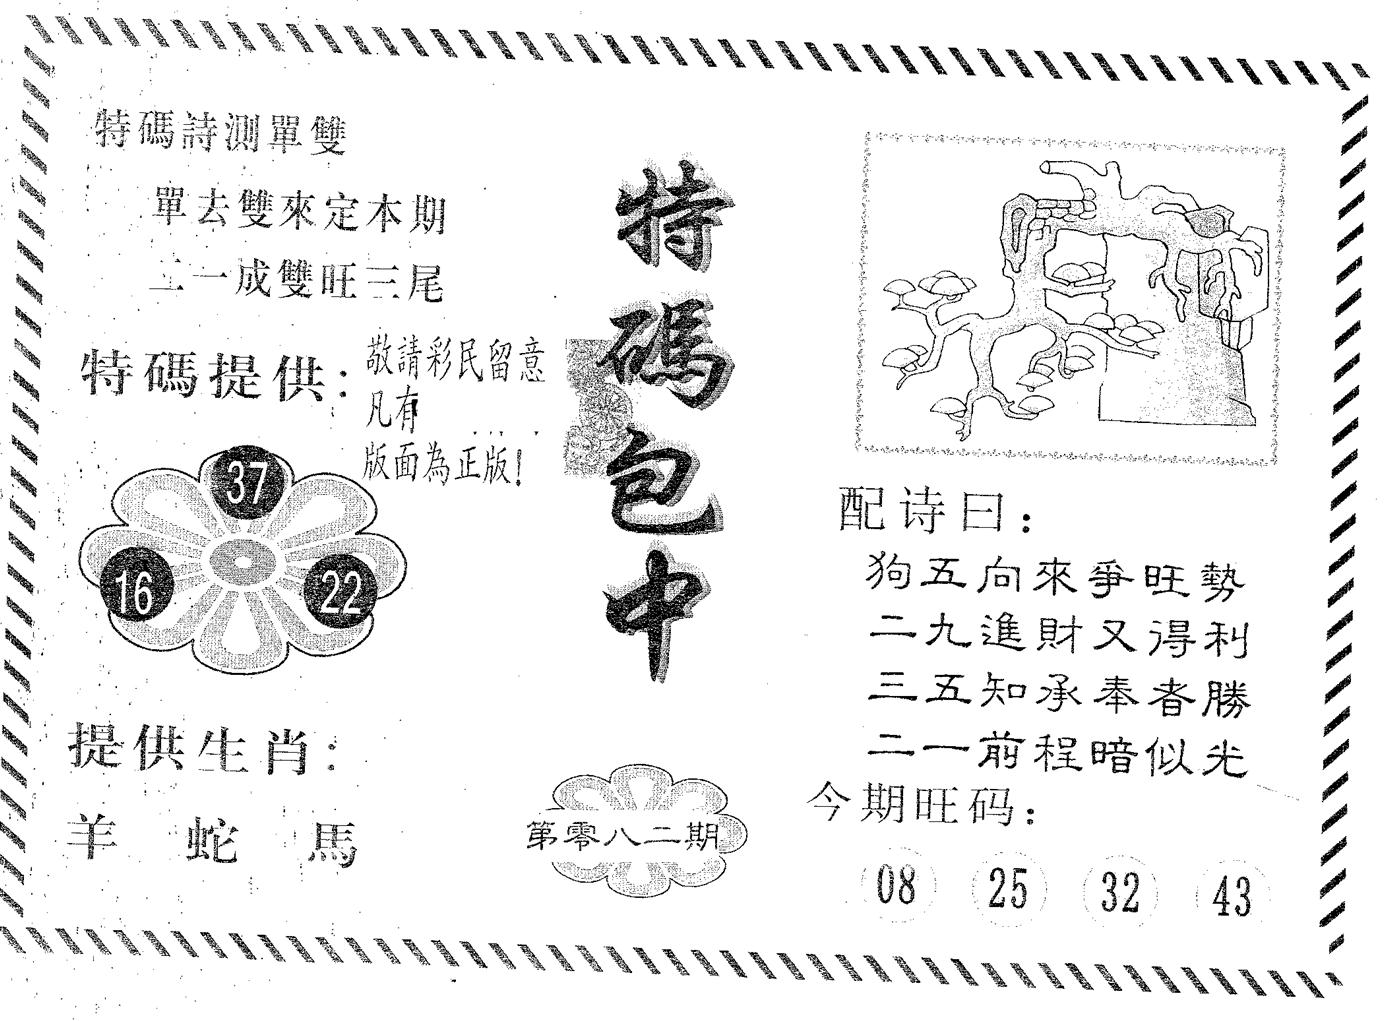 特碼詩測單雙
單去雙來定本期
二一成雙旺三尾
特碼提供:
敬請彩民留意
凡有
版面為正版!
37
16
22
提供生肖:
羊 蛇 馬
特碼包中
第零八二期
配诗曰:
狗五向來爭旺勢
二九進財又得利
三五知承奉者勝
二一前程暗似光
今期旺码:
08 25 32 43